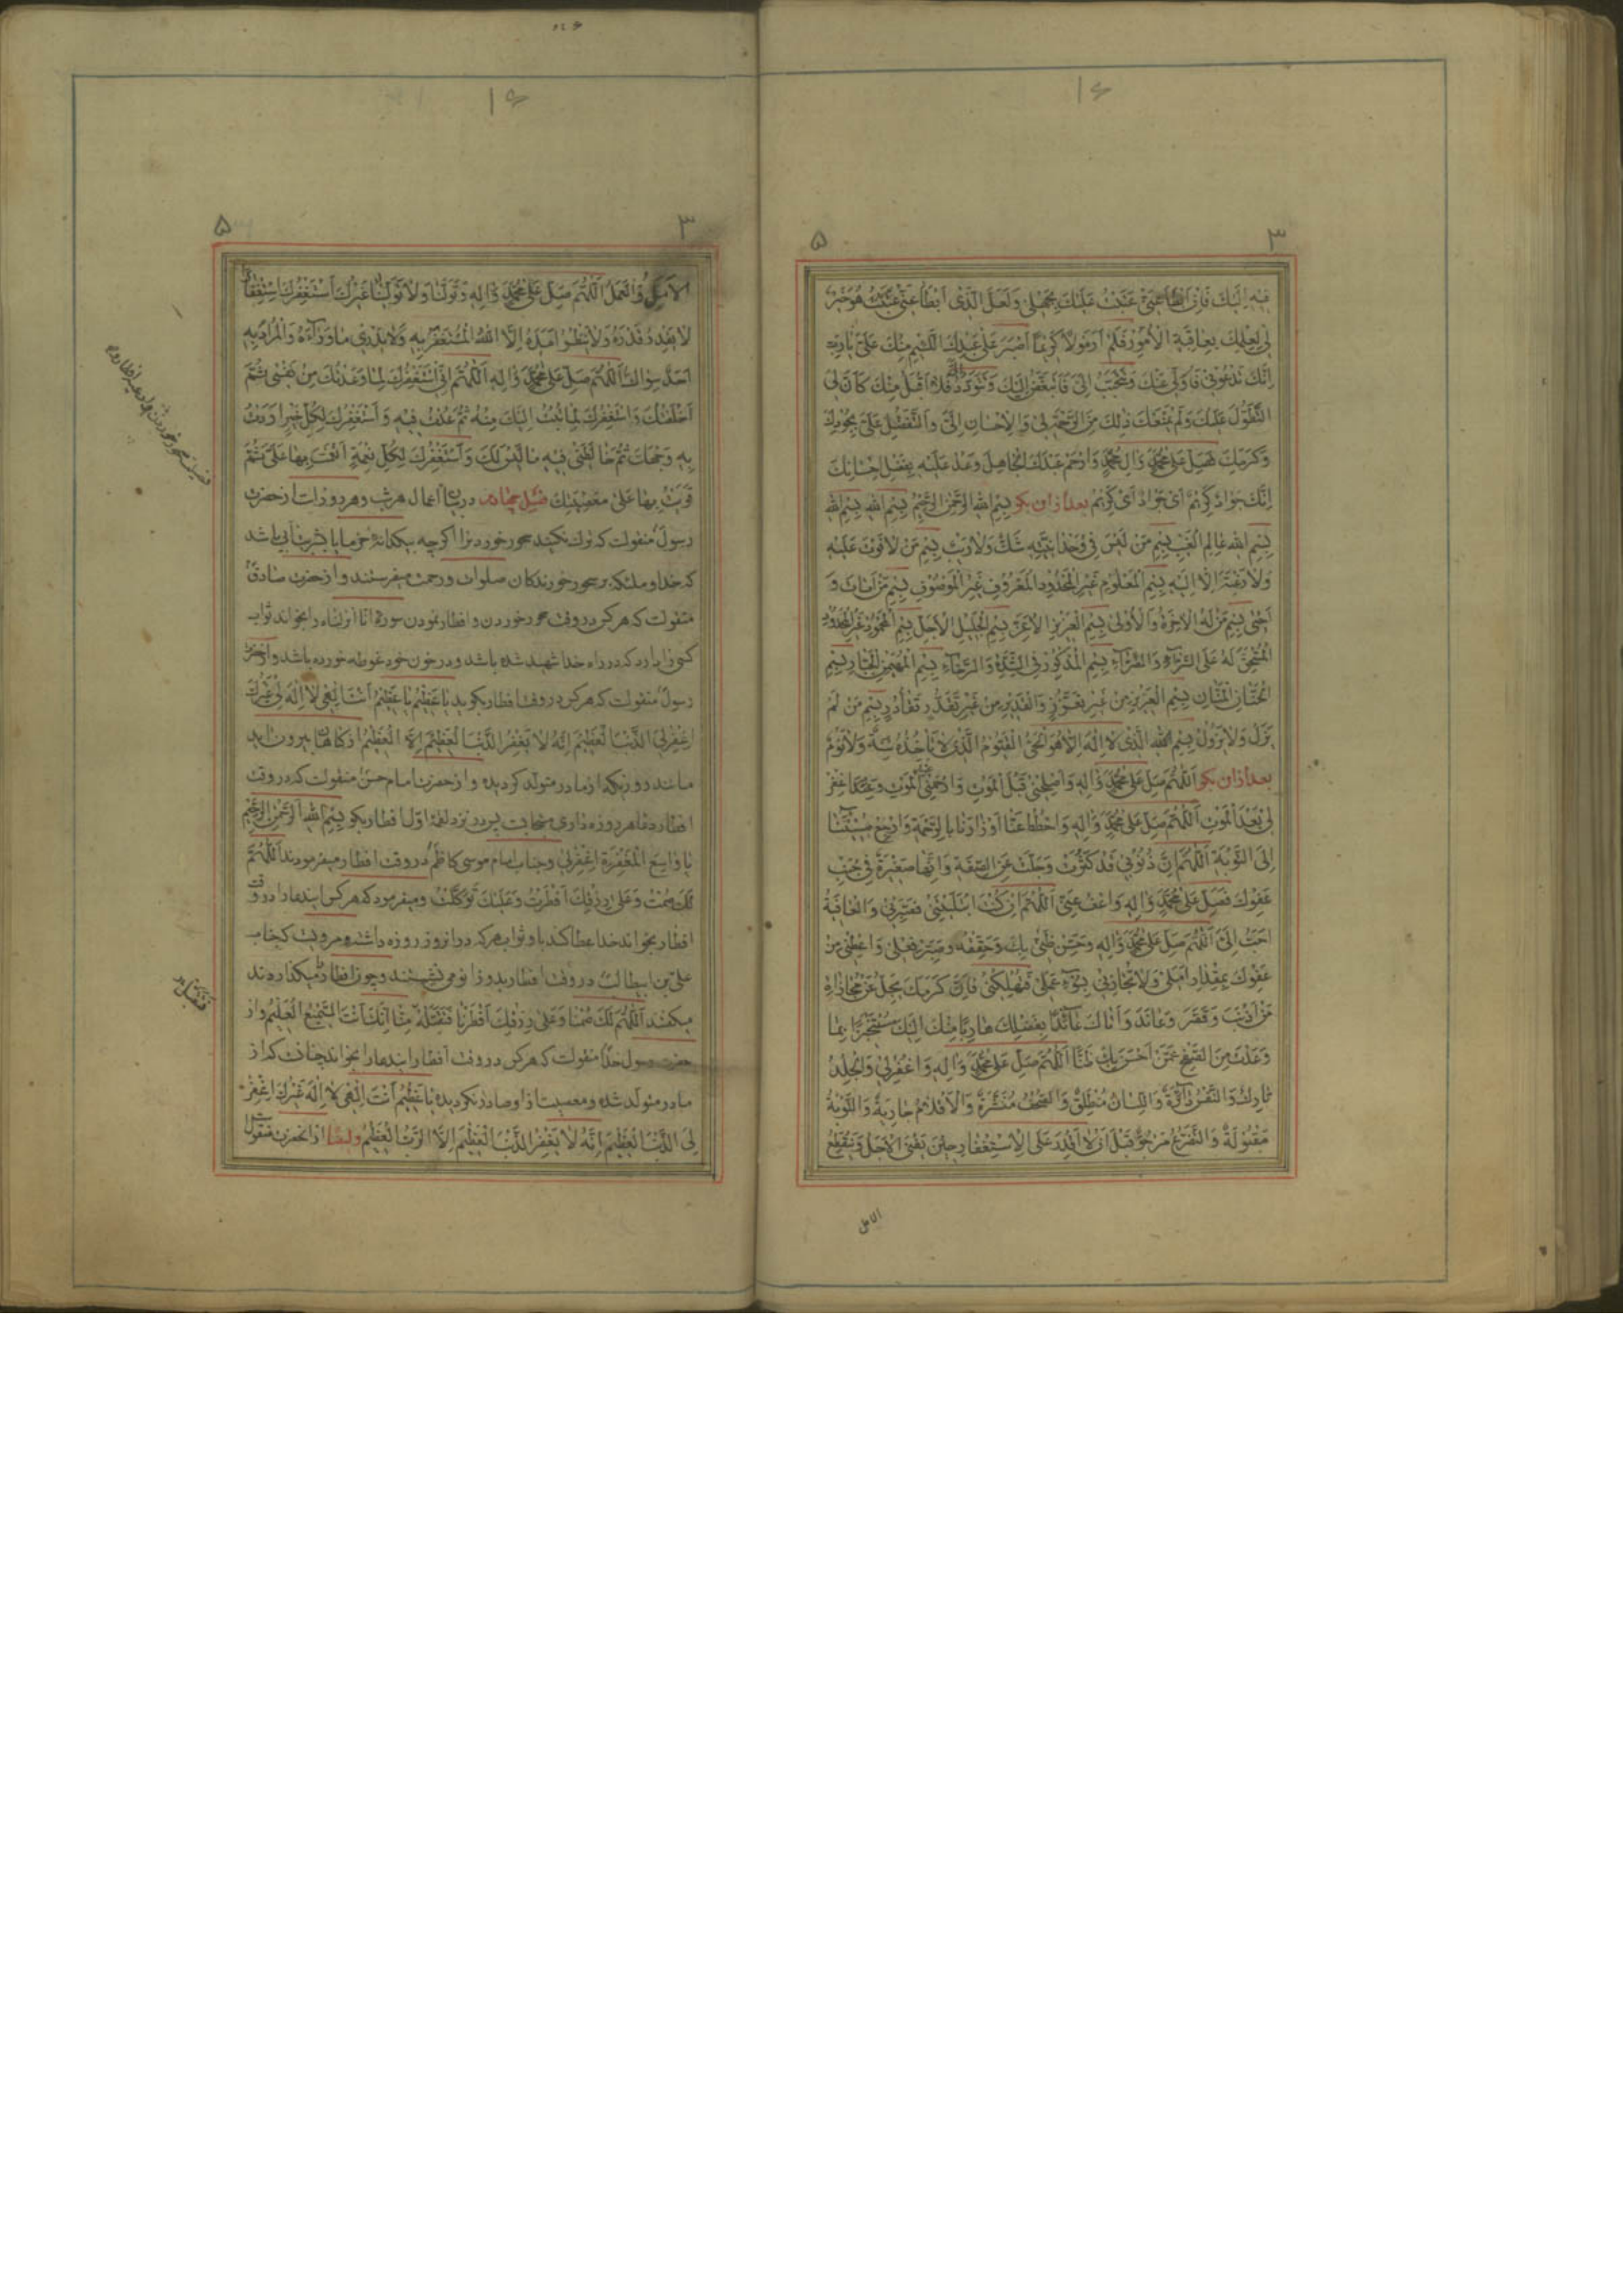 ۱۶
۳
۵
فيه اليك فان ابطأ عنى عتبت عليك بجهلى ولعل الذى ابطأ عنى هو خير
لى لعلمك بعاقبة الامور فلم ار مولا كريما اصبر على عبد لئيم منك على يا رب
انك تدعونى فاولى عنك وتتحبب الى فاتبغض اليك وتتودد الى فلا اقبل منك كان لى
التطول عليك ولم يمنعك ذلك من الرحمة بى والاحسان الى والتفضل على بجودك
وكرمك فصل على محمد وال محمد وارحم عبدك الجاهل وعد عليه بفضل احسانك
انك جواد كريم اى جواد اى كريم بعد ازان بكو بسم الله الرحمن الرحيم بسم الله بسم الله
بسم الله عالم الغيب بسم من ليس فى وحدانيته شك ولا ريب بسم من لا فوت عليه
ولا رغبة الا اليه بسم المعلوم غير المحدود المعروف غير الموصوف بسم من امات و
احيى بسم من له الاخرة والاولى بسم العزيز الاعز بسم الجليل الاجل بسم المحمود غير المحدود
المستحق له على السراء والضراء بسم المذكور فى الشدة والرخاء بسم المهيمن الجبار بسم
الحنان المنان بسم العزيز من غير تعزز والقدير من غير تقدر بسم من لم
يزل ولا يزول بسم الله الذى لا اله الا هو الحى القيوم الذى لا تأخذه سنة ولا نوم
بعد ازان بكو اللهم صل على محمد واله واصلحنى قبل الموت وارحمنى عند الموت واغفر
لى بعد الموت اللهم صل على محمد واله واحطط عنا اوزارنا بالرحمة وارجع بمسيئنا
الى التوبة اللهم ان ذنوبى قد كثرت وجلت عن الصفة وانها صغيرة فى جنب
عفوك فصل على محمد واله واعف عنى اللهم ان كنت ابتليتنى فصبرنى والعافية
احب الى اللهم صل على محمد واله وحسن ظنى بك وحققه وبصر فعلى واعطنى من
عفوك بمقدار املى ولا تجازنى بسوء عملى فتهلكنى فان كرمك يجل عن مجازاة
من اذنب وقصر وعاند واتاك عائذا بفضلك هاربا منك اليك متنجزا بما
وعدت من الصفح عمن احسن بك ظنا اللهم صل على محمد واله واغفر لى والجلد
بارد والنفس دائرة واللسان منطلق والصحف منشرة والاقلام جارية والتوبة
مقبولة والتضرع مرجو قبل ان لا اقدر على الاستغفار حين يفنى الاجل وينقطع
الامل
۱۶
۳
۵
الامل والعمل اللهم صل على محمد واله وتولنا ولا تولنا غيرك استغفرك استغفارا
لا يقدر قدره ولا ينظر امده الا الله المستغفر به ولا يدرى ما وراءه والمراد به
احد سواك اللهم صل على محمد واله اللهم انى استغفرك لما وعدتك من نفسى ثم
اخلفتك واستغفرك لما تبت اليك منه ثم عدت فيه واستغفرك لكل خير اردت
به وجهك ثم خالطنى فيه ما ليس لك واستغفرك لكل نعمة انعمت بها على ثم
قويت بها على معصيتك فصل چهارم در بيان اعمال هر شب و هر روز است از حضرت
رسول منقولست كه ترك نكنيد سحور خوردن را اكرچه بيكدانه خرما يا بشربت ابى باشد
كه خدا و ملئكه بر سحور خورندكان صلوات و رحمت ميفرستند و از حضرت صادق
منقولست كه هر كس در وقت سحور خوردن و افطار نمودن سورهٔ انا انزلناه را بخواند ثواب
كسى دارد كه در راه خدا شهيد شده باشد و در خون خود غوطه خورده باشد و از حضرت
رسول منقولست كه هر كس در وقت افطار بكويد يا عظيم يا عظيم انت الهى لا اله لى غيرك
اغفر لى الذنب العظيم انه لا يغفر الذنب العظيم الا العظيم از كناهان بيرون ايد
مانند روزيكه از مادر متولد كرديده و از حضرت امام حسن منقولست كه در وقت
افطار هر روزه دارى دعائى مستجابست پس در نزد لقمهٔ اول افطار بكو بسم الله الرحمن الرحيم
يا واسع المغفرة اغفر لى و جناب امام موسى كاظم در وقت افطار ميفرمودند اللهم
لك صمت وعلى رزقك افطرت وعليك توكلت و ميفرمود كه هر كس ايندعا را در وقت
افطار بخواند خدا عطا كند باو ثواب هر كه در انروز روزه داشته و مرويست كه جناب
على بن ابيطالب در وقت افطار بدو زانو مى نشستند و چون افطار ميكذاردند
ميكفتند اللهم لك صمنا وعلى رزقك افطرنا فتقبله منا انك انت السميع العليم و از
حضرت رسول خدا منقولست كه هر كس در وقت افطار ايندعا را بخواند چنانست كه از
مادر متولد شده و معصيت از او صادر نكرديده يا عظيم انت الهى لا اله غيرك اغفر
لى الذنب العظيم انه لا يغفر الذنب العظيم الا الرب العظيم و ايضا از انحضرت منقول